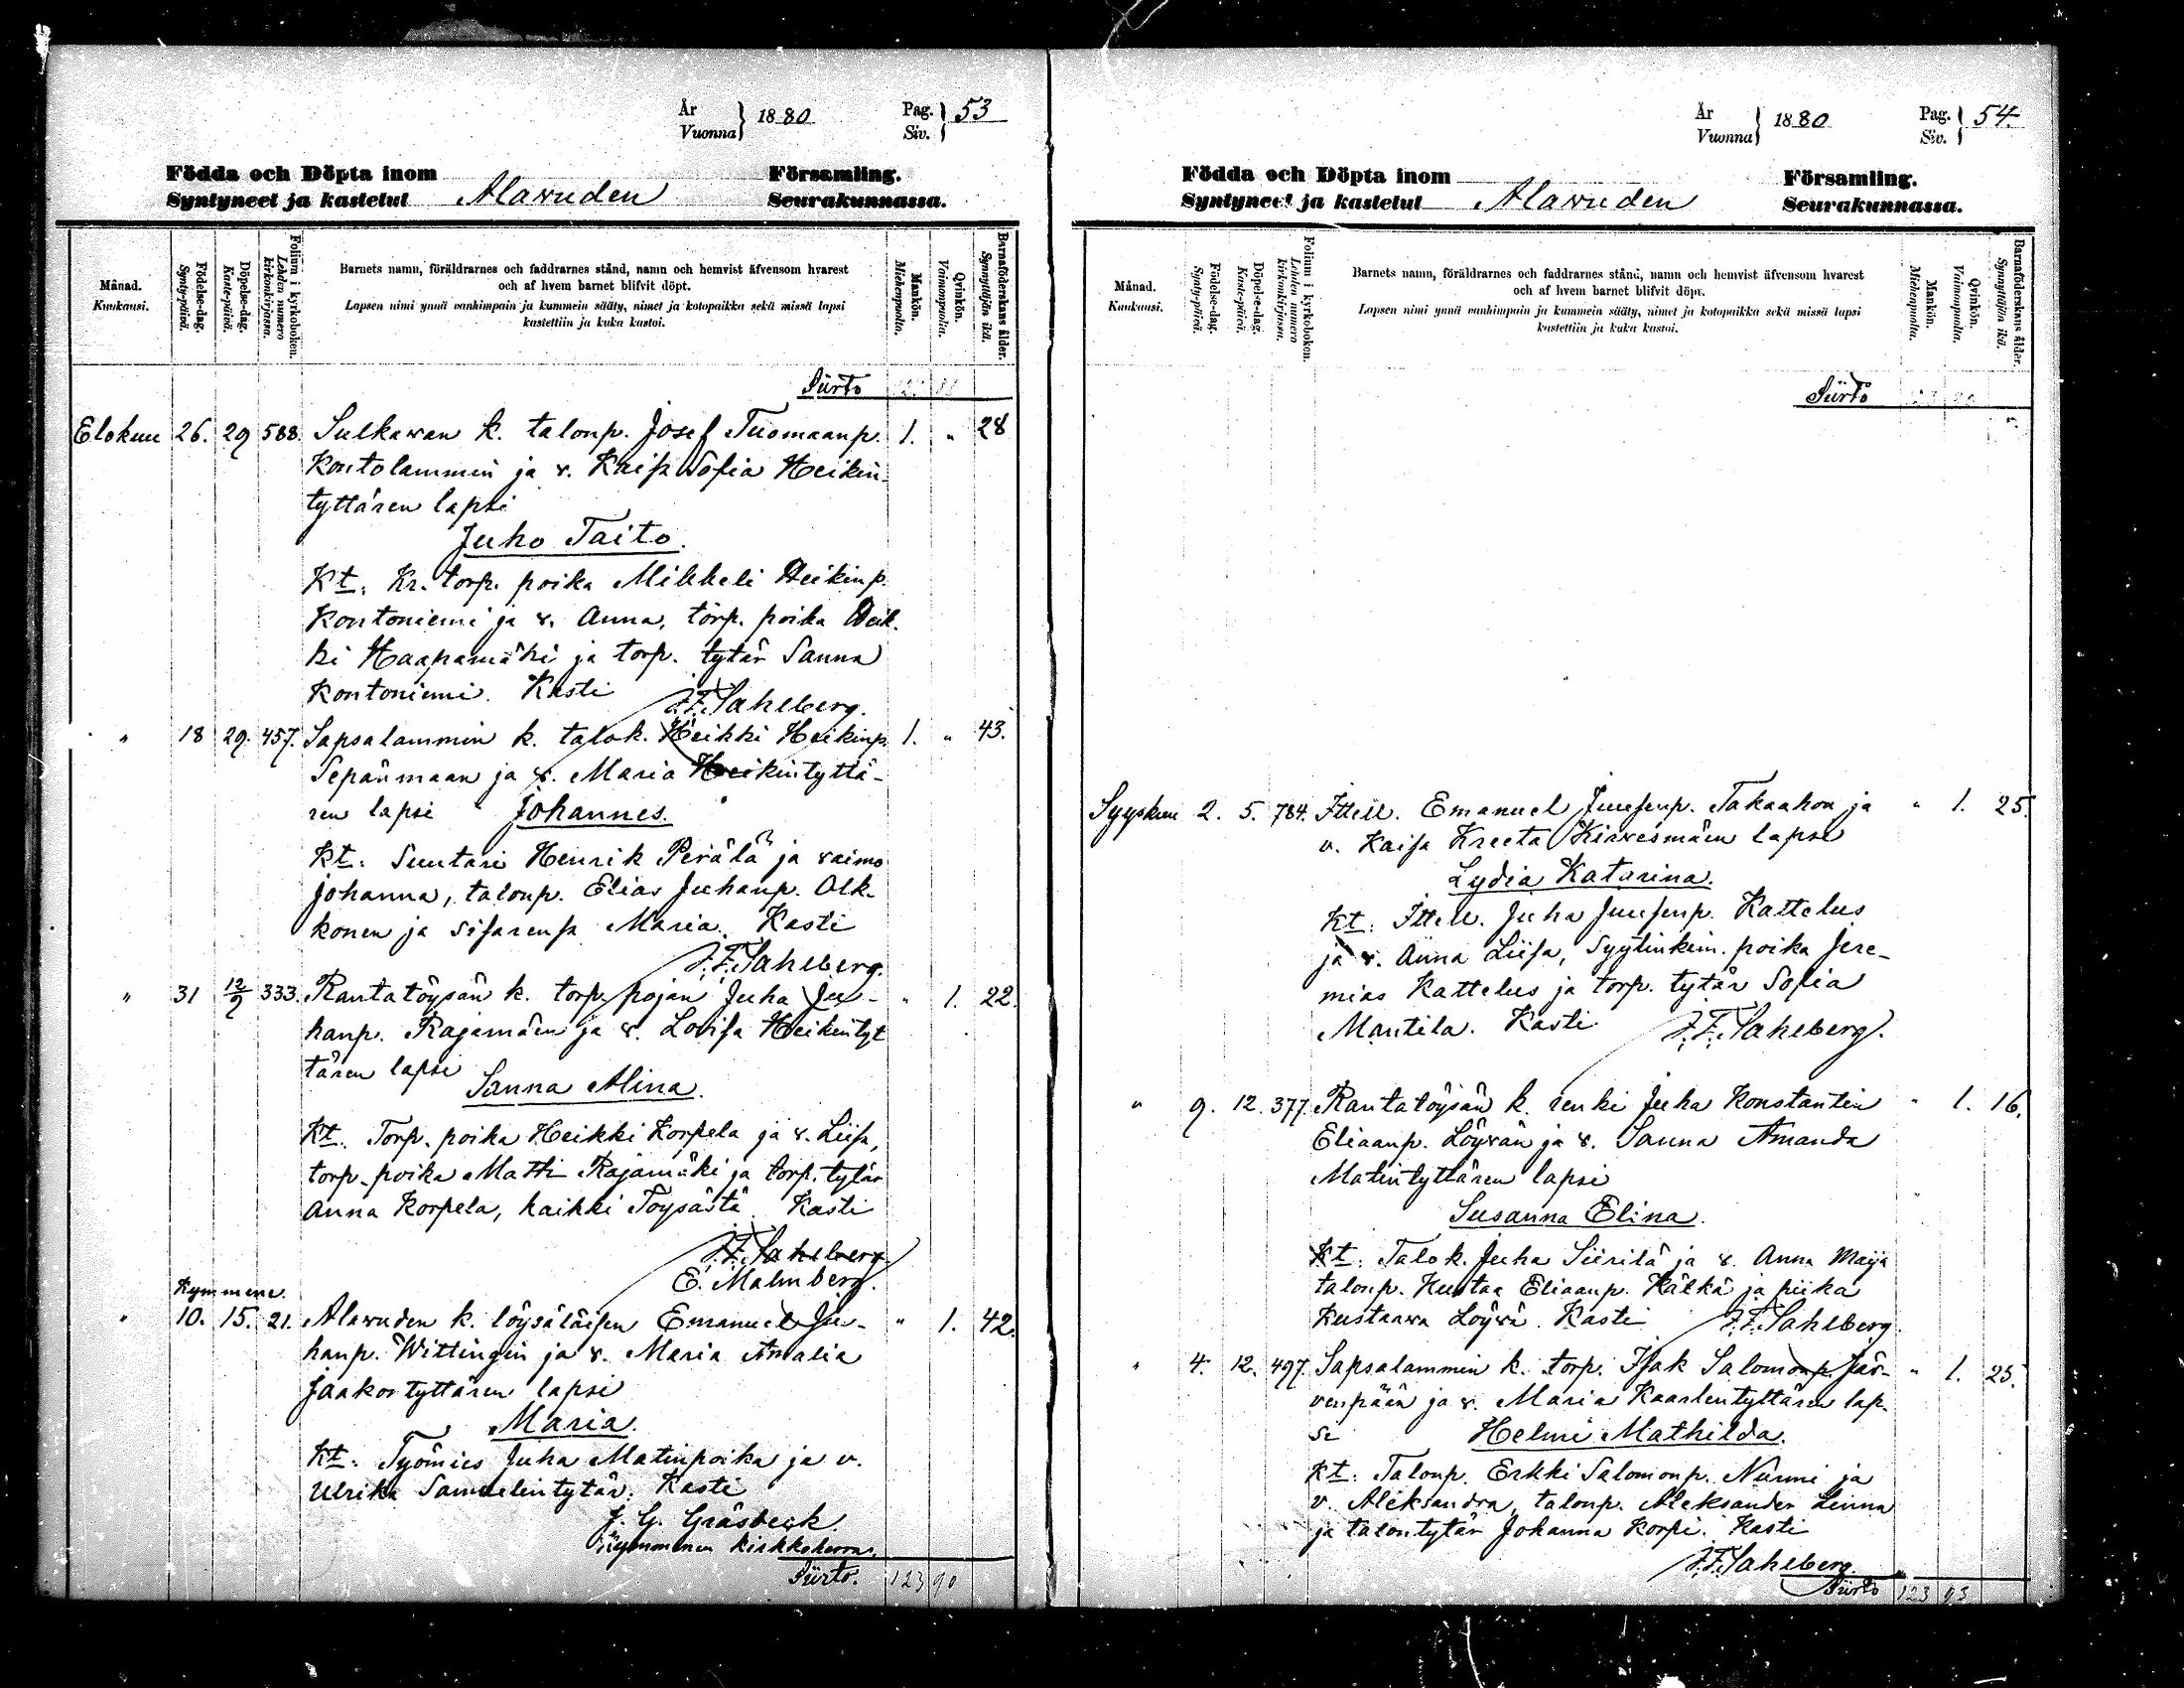 År
Vuonna } 1880
Pag.
Siv. } 53
Födda och Döpta inom
Syntyneet ja kastetut Alavuden
Församling.
Seurakunnassa.
Månad.
Kuukausi.
Födelse-dag.
Synty-päivä.
Döpelse-dag.
Kaste-päivä.
Folium i kyrkoboken.
Lehden numero
kirkonkirjassa.
Barnets namn, föräldrarnes och faddrarnes stånd, namn och hemvist äfvensom hvarest
och af hvem barnet blifvit döpt.
Lapsen nimi ynnä vanhimpain ja kummein sääty, nimet ja kotopaikka sekä missä lapsi
kastettiin ja kuka kastoi.
Mankön.
Miehenpuolta.
Qvinkön.
Vaimonpuolta.
Barnaföderskans ålder.
Synnyttäjän ikä.
Siirto
Elokuu 26. 29 588. Sulkavan k. talonp. Josef Tuomaanp. 1. " 28
Kontolammin ja v. Kaisa Sofia Heikin-
tyttären lapsi
Juho Taito.
Kt. Kr. torp. poika Mikkeli Heikinp.
Kontoniemi ja v. Anna, torp. poika Heik-
ki Haapamäki ja torp. tytär Sanna
Kontoniemi. Kasti
J.F. Sahlberg.
" 18 29. 457. Sapsalammin k. talok. Heikki Heikinp. 1. " 43.
Sepänmaan ja v. Maria Heikintyttä-
ren lapsi Johannes.
Kt: Suutari Henrik Perälä ja vaimo
Johanna, talonp. Elias Juhanp. Olk-
konen ja sisarensa Maria. Kasti
J.F. Sahlberg.
" 31 12/9 333. Rantatöysän k. torp. pojan Juha Ju- " 1. 22.
hanp. Rajamäen ja v. Lovisa Heikintyt
tären lapsi
Sanna Alina.
Kt. Torp. poika Heikki Korpela ja v. Liisa,
torp. poika Matti Rajamäki ja torp. tytär
Anna Korpela, kaikki Töysästä. Kasti
J.F. Sahlberg
E. Malmberg.
Kymmene.
" 10. 15. 21. Alavuden k. löysäläisen Emanuel Ju- " 1. 42.
hanp. Wittingin ja v. Maria Amalia
Jaakontyttären lapsi
Maria.
Kt. Työmies Juha Matinpoika ja v.
Ulrika Samuelintytär. Kasti
J. G. Gråsbeck.
Kymmenen kirkkoherra.
Siirto. 123 90
År
Vuonna } 1880
Pag.
Siv. } 54.
Födda och Döpta inom
Syntyneet ja kastetut Alavuden
Församling.
Seurakunnassa.
Månad.
Kuukausi.
Födelse-dag.
Synty-päivä.
Döpelse-dag.
Kaste-päivä.
Folium i kyrkoboken.
Lehden numero
kirkonkirjassa.
Barnets namn, föräldrarnes och faddrarnes stånd, namn och hemvist äfvensom hvarest
och af hvem barnet blifvit döpt.
Lapsen nimi ynnä vanhimpain ja kummein sääty, nimet ja kotopaikka sekä missä lapsi
kastettiin ja kuka kastoi.
Mankön.
Miehenpuolta.
Qvinkön.
Vaimonpuolta.
Barnaföderskans ålder.
Synnyttäjän ikä.
Siirto
Syyskuu 2. 5. 784. Ittell. Emanuel Juusenp. Takaahon ja " 1. 25.
v. Kaisa Kreeta Kirvesmäen lapsi
Lydia Katarina.
Kt: Ittell. Juha Juusenp. Kattelus
ja v. Anna Liisa, Syytinkim. poika Jere-
mias Kattelus ja torp. tytär Sofia
Mantila. Kasti J.F. Sahlberg.
" 9. 12. 377. Rantatöysän k. renki Juha Konstantin " 1. 16.
Eliaanp. Löyvän ja v. Sanna Amanda
Matintyttären lapsi
Susanna Elina.
Kt: Talok. Juha Siirilä ja v. Anna Maija
talonp. Kustaa Eliaanp. Kälkä ja piika
Kustaava Löyvä. Kasti J.F. Sahlberg.
" 4. 12. 497. Sapsalammin k. torp. Isak Salomonp. Jär- " 1. 25.
venpään ja v. Maria Kaarlentyttären lap-
si Helmi Mathilda.
Kt: Talonp. Erkki Salomonp. Nurmi ja
v. Aleksandra, talonp. Aleksander Linna
ja talontytär Johanna Korpi. Kasti
J.F. Sahlberg.
Siirto 123 93